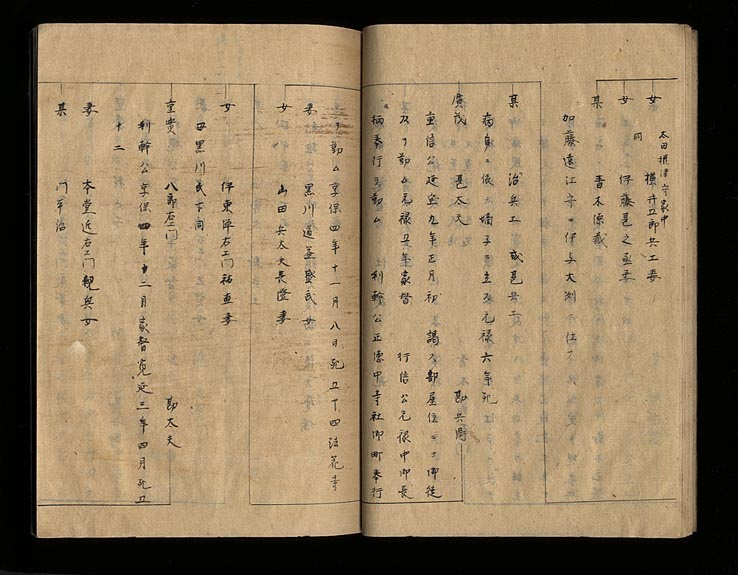 太田摂津守家中
女　横井五郎兵エ妻
同
女　伊藤邑之丞妻
某　青木源蔵
加藤遠江守　伊予大洲　仕フ
某　治兵エ　或邑兵エ
病身ニ依　嫡子　立　元禄六年死
廣茂　邑太夫　勘兵衛
重信公延宝九年正月初　謁　部屋住ニ　御従
及　勤ム元禄　年家督　行信公元禄中御長
柄奉行　勤ム　利幹公正徳中寺社御町奉行
ヲ勤ム享保四年十一月八日死五十四法花寺
妻　黒川道　盛武女
女　山田兵太夫長澄妻
女　伊東　右エ門祐　妻
母黒川氏下同
重賢　八郎右エ門　勘太夫
利幹公享保四年十二月家督寛延三年四月死五
十二
妻　本堂近右エ門親與女
某　門平治